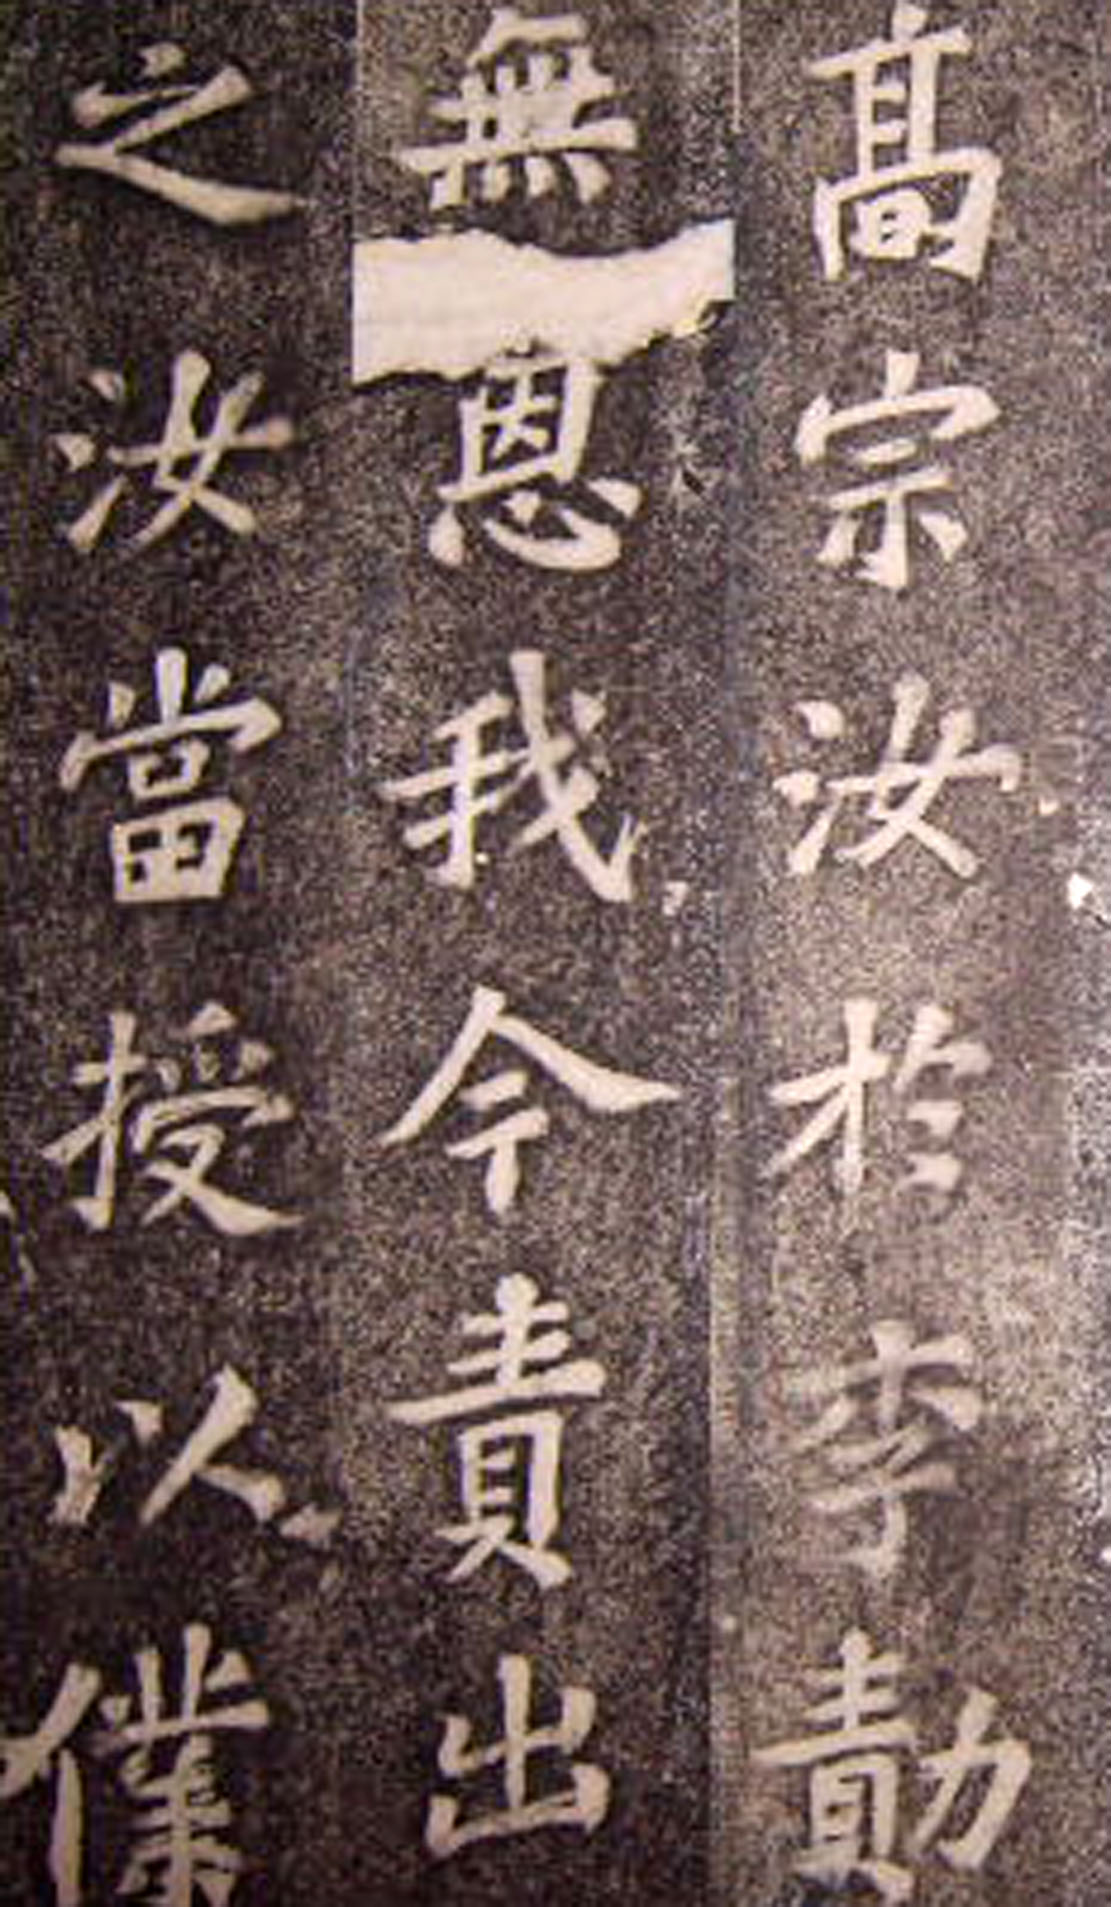 高宗汝於李勣
無恩我今責出
之汝當授以僕